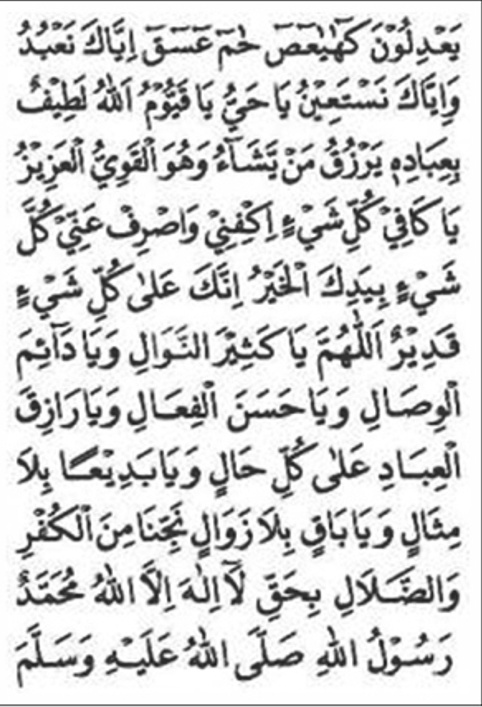 يَعْدِلُوْنَ كٓهٰيٰعٓصٓ حٰمٓ عٓسٓقٓ اِيَّاكَ نَعْبُدُ
وَاِيَّاكَ نَسْتَعِيْنُ يَا حَيُّ يَا قَيُّوْمُ اَللّٰهُ لَطِيْفٌ
بِعِبَادِهٖ يَرْزُقُ مَنْ يَّشَآءُ وَهُوَ الْقَوِيُّ الْعَزِيْزُ
يَا كَافِيْ كُلِّ شَيْءٍ اِكْفِنِيْ وَاصْرِفْ عَنِّيْ كُلَّ
شَيْءٍ بِيَدِكَ الْخَيْرُ اِنَّكَ عَلٰى كُلِّ شَيْءٍ
قَدِيْرٌ اَللّٰهُمَّ يَا كَثِيْرَ النَّوَالِ وَيَا دَآئِمَ
الْوِصَالِ وَيَا حَسَنَ الْفِعَالِ وَيَا رَازِقَ
الْعِبَادِ عَلٰى كُلِّ حَالٍ وَيَا بَدِيْعًا بِلَا
مِثَالٍ وَيَا بَاقٍ بِلَا زَوَالٍ نَجِّنَا مِنَ الْكُفْرِ
وَالضَّلَالِ بِحَقِّ لَآ اِلٰهَ اِلَّا اللّٰهُ مُحَمَّدٌ
رَسُوْلُ اللّٰهِ صَلَّى اللّٰهُ عَلَيْهِ وَسَلَّمَ